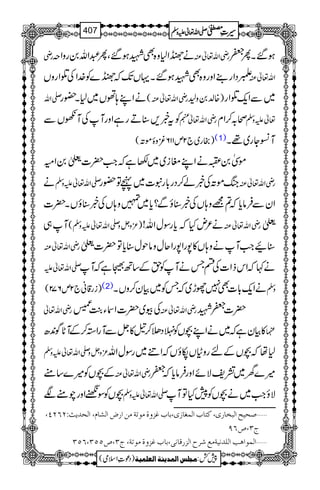 سیرتِ مصطفیٰ صلی اللہ تعالیٰ علیہ وسلم 407
ہو گئے۔ پھر جعفر رضی اللہ تعالیٰ عنہ نے جھنڈا لیا وہ بھی شہید ہو گئے، پھر عبداللہ بن رواحہ رضی
اللہ تعالیٰ عنہ علمبردار بنے اور وہ بھی شہید ہو گئے۔ یہاں تک کہ جھنڈے کو خدا کی تلواروں
میں سے ایک تلوار (خالد بن ولید رضی اللہ تعالیٰ عنہ) نے اپنے ہاتھوں میں لیا۔ حضور صلی اللہ
تعالیٰ علیہ وسلم صحابہ کرام رضی اللہ تعالیٰ عنہم کو یہ خبریں سناتے رہے اور آپ کی آنکھوں سے
آنسو جاری تھے۔ (1) (بخاری ج۲ ص۶۱۱ غزوۂ موتہ)
موسیٰ بن عقبہ نے اپنے مغازی میں لکھا ہے کہ جب حضرت یعلیٰ بن امیہ
رضی اللہ تعالیٰ عنہ جنگ موتہ کی خبر لے کر دربار نبوت میں پہنچے تو حضور صلی اللہ تعالیٰ علیہ وسلم نے
ان سے فرمایا کہ تم مجھے وہاں کی خبر سناؤ گے؟ یا میں تمہیں وہاں کی خبر سناؤں۔ حضرت
یعلیٰ رضی اللہ تعالیٰ عنہ نے عرض کیا کہ یا رسول اللہ! (عزوجل و صلی اللہ تعالیٰ علیہ وسلم) آپ ہی
سنایئے جب آپ نے وہاں کا پورا پورا حال و ماحول سنایا تو حضرت یعلیٰ رضی اللہ تعالیٰ عنہ
نے کہا کہ اس ذات کی قسم جس نے آپ کو حق کے ساتھ بھیجا ہے کہ آپ صلی اللہ تعالیٰ علیہ
وسلم نے ایک بات بھی نہیں چھوڑی کہ جس کو میں بیان کروں۔ (2) (زرقانی ج۲ ص۲۷۶)
حضرت جعفر شہید رضی اللہ تعالیٰ عنہ کی بیوی حضرت اسماء بنت عمیس رضی اللہ تعالیٰ
عنہا کا بیان ہے کہ میں نے اپنے بچوں کو نہلا دھلا کر تیل کاجل سے آراستہ کر کے آٹا گوندھ
لیا تھا کہ بچوں کے لئے روٹیاں پکاؤں کہ اتنے میں رسول اللہ عزوجل و صلی اللہ تعالیٰ علیہ وسلم
میرے گھر میں تشریف لائے اور فرمایا کہ جعفر رضی اللہ تعالیٰ عنہ کے بچوں کو میرے سامنے
لاؤ جب میں نے بچوں کو پیش کیا تو آپ صلی اللہ تعالیٰ علیہ وسلم بچوں کو سونگھنے اور چومنے لگے
......صحیح البخاری، کتاب المغازی، باب غزوۃ موتۃ من ارض الشام، الحدیث: ٤٢٦٢،
ج۳، ص۹۶
......المواهب اللدنیة مع شرح الزرقانی، باب غزوة موتة، ج۳، ص۳۵۵، ۳۵۶
پیش کش: مجلس المدینة العلمیة (دعوتِ اسلامی)